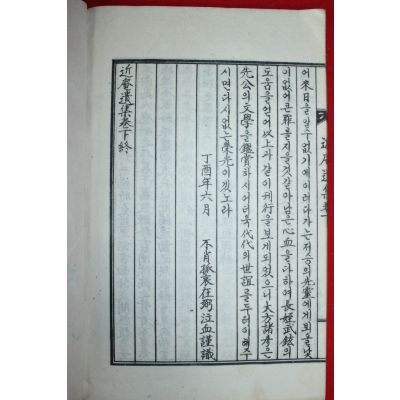 어 來日을 알 수 없기에 이러다가는 저승의 先靈에게 뵈올 낯
이 없어 큰 罪를 지을 것 같아 남은 心血을 다하여 長姪 武鉉의
도움을 얻어 以上과 같이 刊行을 보게 되었으니 大方諸彦은
先公의 文學을 鑑賞하시어 더욱 代代의 世誼를 두터이 해주
시면 다시 없는 榮光이겠노라
丁酉年 六月
不肖孤 衰在 泣血謹識
近庵遺集卷下終